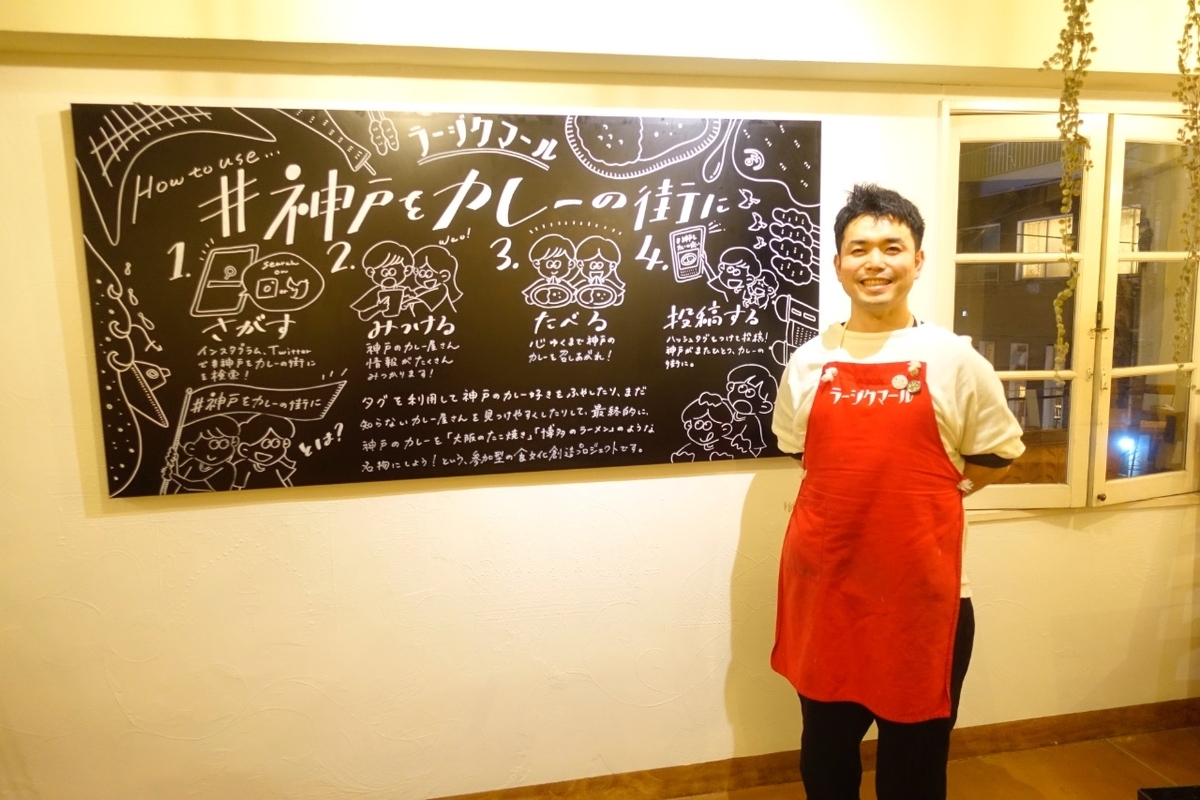 ラージクマール
How to use...
#神戸をカレーの街に
1.
Search on
さがす
インスタグラム、Twitter
で#神戸をカレーの街に
を検索!
2.
Wao!
みつける
神戸のカレー屋さん
情報がたくさん
みつかります!
3.
たべる
心ゆくまで神戸の
カレーを召しあがれ!
4.
#神戸を
カレーの街に
投稿する
ハッシュタグをつけて投稿!
神戸がまたひとつ、カレーの
街に。
#神戸をカレーの街に
とは?
タグを利用して神戸のカレー好きをふやしたり、まだ
知らないカレー屋さんを見つけやすくしたりして、最終的に、
神戸のカレーを「大阪のたこ焼き」「博多のラーメン」のような
名物にしよう!という、参加型の食文化創造プロジェクトです。
ラージクマール